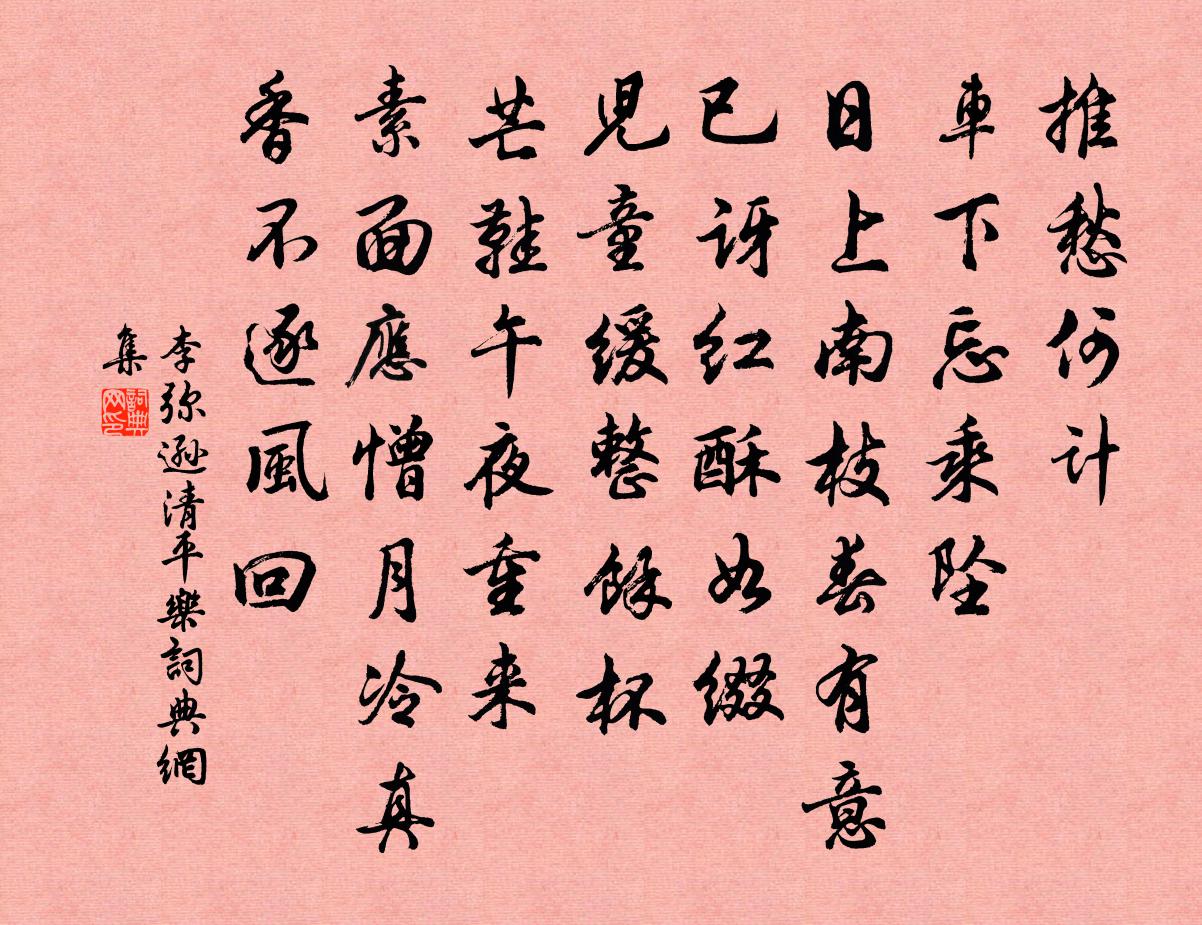 推愁何计
車下忘乘坠
日上南枝春有意
已讶红酥如缀
児童缓整餘杯
芒鞋午夜重来
素面應憎月冷真
香不逐風回
李弥遜清平樂詞典網
集
詞典網印